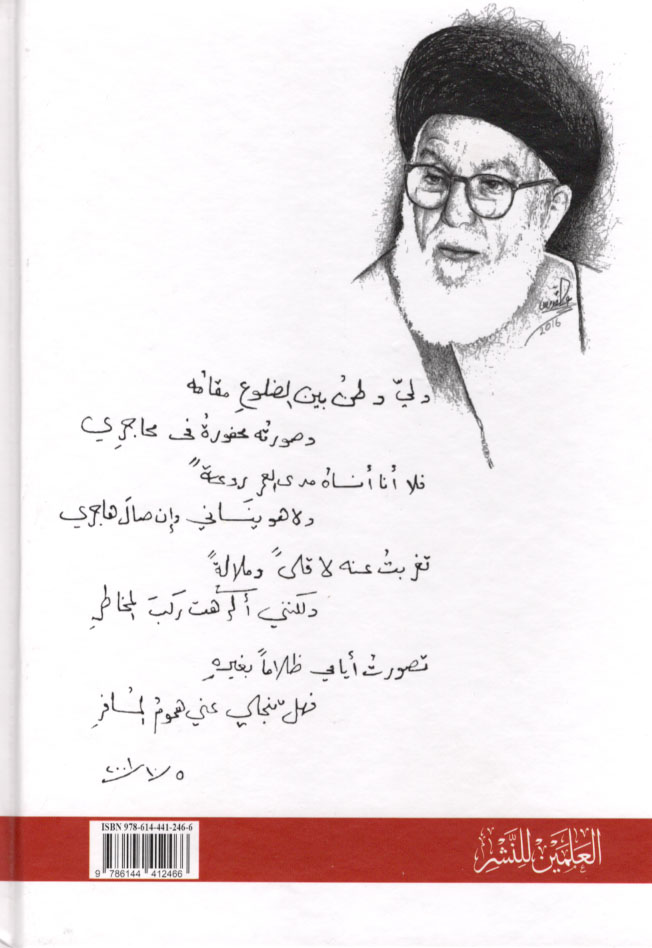 2016
ولي وطنٌ بين الضلوعِ مقامُه
وصورتُه محفورةٌ في محاجري
فلا أنا أنساهُ مدى العمر روعةً
ولا هو ينسَاني وإن صالَ هاجري
تغربتُ عنه لا قلىً وملالةً
ولكنني أُكرهت ركبَ المخاطرِ
تصورتُ أيامي ظلاماً بغيرهِ
فهل تنجلي عني همومُ المُسافرِ
٥/١٠/٢٠٠١
ISBN 978-614-441-246-6
9 786144 412466
العَلَمَين للنَّشْرِ